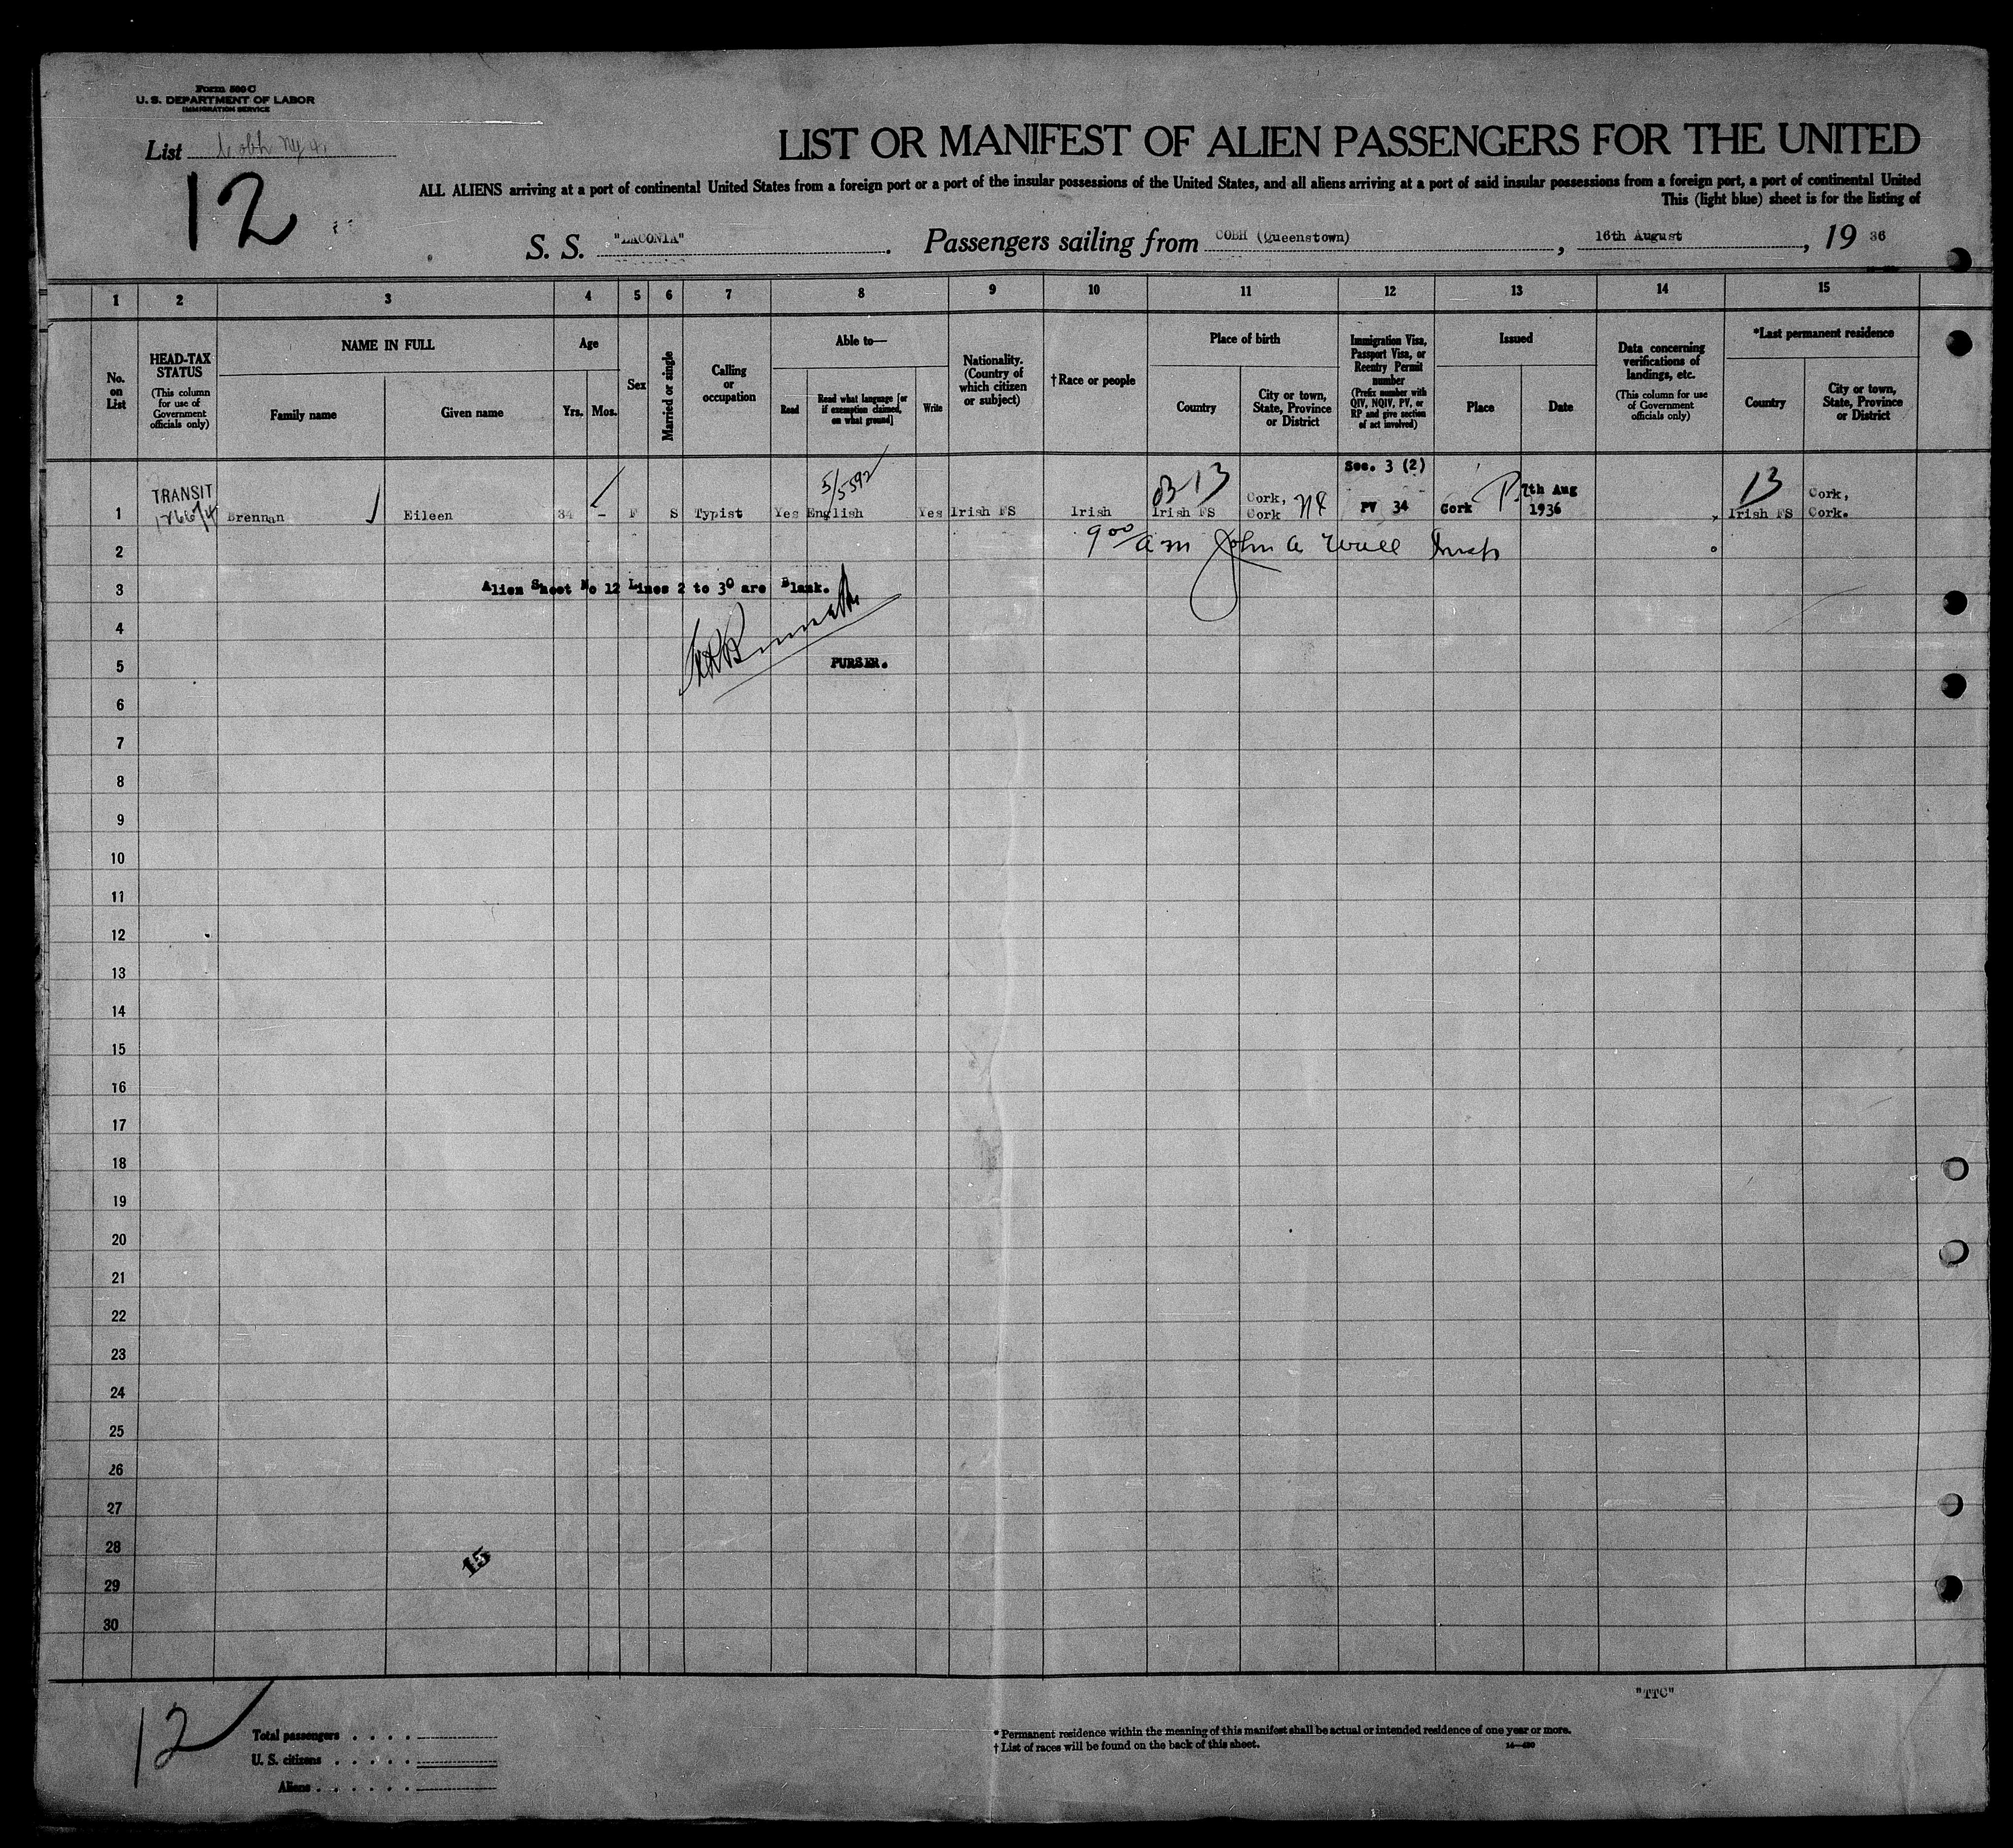 Form 500 C
U. S. DEPARTMENT OF LABOR
IMMIGRATION SERVICE
List Cobh
12
LIST OR MANIFEST OF ALIEN PASSENGERS FOR THE UNITED
ALL ALIENS arriving at a port of continental United States from a foreign port or a port of the insular possessions of the United States, and all aliens arriving at a port of said insular possessions from a foreign port, a port of continental United
This (light blue) sheet is for the listing of
S. S. "LACONIA". Passengers sailing from COBH (Queenstown), 16th August, 19 36
1 2 3 4 5 6 7 8 9 10 11 12 13 14 15
No. on List
HEAD-TAX STATUS (This column for use of Government officials only)
NAME IN FULL
Family name
Given name
Age
Yrs. Mos.
Sex
Married or single
Calling or occupation
Able to—
Read
Read what language [or if exemption claimed, on what ground]
Write
Nationality. (Country of which citizen or subject)
†Race or people
Place of birth
Country
City or town, State, Province or District
Immigration Visa, Passport Visa, or Reentry Permit number (Prefix number with QIV, NQIV, PV, or RP and give section of act involved)
Issued
Place
Date
Data concerning verifications of landings, etc. (This column for use of Government officials only)
*Last permanent residence
Country
City or town, State, Province or District
TRANSIT
5/5592
13
Sec. 3 (2)
7th Aug
13
Cork,
Cork,
1 Brennan Eileen 34 - F S Typist Yes English Yes Irish FS Irish Irish FS Cork PV 34 Cork P. 1936 Irish FS Cork.
2
9 00 am John A Wall
3
Alien Sheet No 12 Lines 2 to 30 are Blank.
4
5
PURSER.
6
7
8
9
10
11
12
13
14
15
16
17
18
19
20
21
22
23
24
25
26
27
28
15
29
30
"TTC"
12
Total passengers . . . .
U. S. citizens . . . . .
Aliens . . . . . .
* Permanent residence within the meaning of this manifest shall be actual or intended residence of one year or more.
† List of races will be found on the back of this sheet.